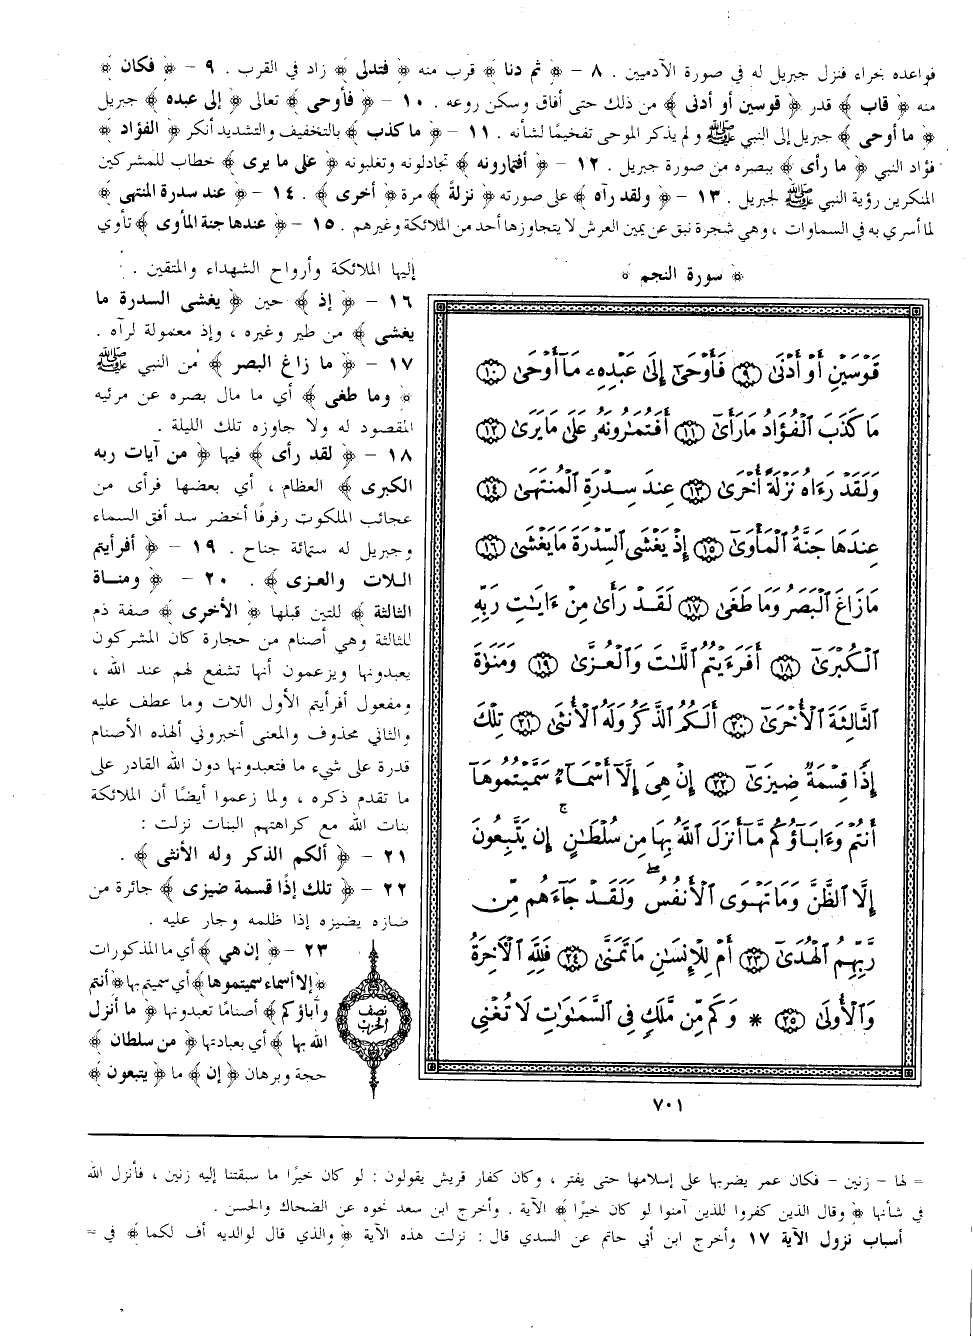 فواعده بحراء فنزل جبريل له في صورة الآدميين . ٨ - ﴿ ثم دنا ﴾ قرب منه ﴿ فتدلى ﴾ زاد في القرب . ٩ - ﴿ فكان ﴾
منه ﴿ قاب ﴾ قدر ﴿ قوسين أو أدنى ﴾ من ذلك حتى أفاق وسكن روعه . ١٠ - ﴿ فأوحى ﴾ تعالى ﴿ إلى عبده ﴾ جبريل
﴿ ما أوحى ﴾ جبريل إلى النبي ﷺ ولم يذكر الموحى تفخيمًا لشأنه . ١١ - ﴿ ما كذب ﴾ بالتخفيف والتشديد أنكر ﴿ الفؤاد ﴾
فؤاد النبي ﴿ ما رأى ﴾ ببصره من صورة جبريل . ١٢ - ﴿ أفتمارونه ﴾ تجادلونه وتغلبونه ﴿ على ما يرى ﴾ خطاب للمشركين
المنكرين رؤية النبي ﷺ لجبريل . ١٣ - ﴿ ولقد رآه ﴾ على صورته ﴿ نزلةً ﴾ مرة ﴿ أخرى ﴾ . ١٤ - ﴿ عند سدرة المنتهى ﴾
لما أسري به في السماوات ، وهي شجرة نبق عن يمين العرش لا يتجاوزها أحد من الملائكة وغيرهم . ١٥ - ﴿ عندها جنة المأوى ﴾ تأوي
إليها الملائكة وأرواح الشهداء والمتقين .
١٦ - ﴿ إذ ﴾ حين ﴿ يغشى السدرة ما
يغشى ﴾ من طير وغيره ، وإذ معمولة لرآه .
١٧ - ﴿ ما زاغ البصر ﴾ من النبي ﷺ
﴿ وما طغى ﴾ أي ما مال بصره عن مرئيه
المقصود له ولا جاوزه تلك الليلة .
١٨ - ﴿ لقد رأى ﴾ فيها ﴿ من آيات ربه
الكبرى ﴾ العظام ، أي بعضها فرأى من
عجائب الملكوت رفرفًا أخضر سد أفق السماء
وجبريل له ستمائة جناح . ١٩ - ﴿ أفرأيتم
اللات والعزى ﴾ . ٢٠ - ﴿ ومناة
الثالثة ﴾ للتين قبلها ﴿ الأخرى ﴾ صفة ذم
للثالثة وهي أصنام من حجارة كان المشركون
يعبدونها ويزعمون أنها تشفع لهم عند الله ،
ومفعول أفرأيتم الأول اللات وما عطف عليه
والثاني محذوف والمعنى أخبروني ألهذه الأصنام
قدرة على شيء ما فتعبدونها دون الله القادر على
ما تقدم ذكره ، ولما زعموا أيضًا أن الملائكة
بنات الله مع كراهتهم البنات نزلت :
٢١ - ﴿ ألكم الذكر وله الأنثى ﴾ .
٢٢ - ﴿ تلك إذًا قسمة ضيزى ﴾ جائرة من
ضازه يضيزه إذا ظلمه وجار عليه .
٢٣ - ﴿ إن هي ﴾ أي ما المذكورات
﴿ إلا أسماء سميتموها ﴾ أي سميتم بها ﴿ أنتم
وآباؤكم ﴾ أصنامًا تعبدونها ﴿ ما أنزل
الله بها ﴾ أي بعبادتها ﴿ من سلطان ﴾
حجة وبرهان ﴿ إن ﴾ ما ﴿ يتبعون ﴾
نصف
الحزب
﴿ سورة النجم ﴾
قَوْسَيْنِ أَوْ أَدْنَىٰ ٩ فَأَوْحَىٰٓ إِلَىٰ عَبْدِهِۦ مَآ أَوْحَىٰ ١٠
مَا كَذَبَ ٱلْفُؤَادُ مَا رَأَىٰٓ ١١ أَفَتُمَٰرُونَهُۥ عَلَىٰ مَا يَرَىٰ ١٢
وَلَقَدْ رَءَاهُ نَزْلَةً أُخْرَىٰ ١٣ عِندَ سِدْرَةِ ٱلْمُنتَهَىٰ ١٤
عِندَهَا جَنَّةُ ٱلْمَأْوَىٰٓ ١٥ إِذْ يَغْشَى ٱلسِّدْرَةَ مَا يَغْشَىٰ ١٦
مَا زَاغَ ٱلْبَصَرُ وَمَا طَغَىٰ ١٧ لَقَدْ رَأَىٰ مِنْ ءَايَٰتِ رَبِّهِ
ٱلْكُبْرَىٰٓ ١٨ أَفَرَءَيْتُمُ ٱللَّٰتَ وَٱلْعُزَّىٰ ١٩ وَمَنَوٰةَ
ٱلثَّالِثَةَ ٱلْأُخْرَىٰٓ ٢٠ أَلَكُمُ ٱلذَّكَرُ وَلَهُ ٱلْأُنثَىٰ ٢١ تِلْكَ
إِذًا قِسْمَةٌ ضِيزَىٰٓ ٢٢ إِنْ هِىَ إِلَّآ أَسْمَآءٌ سَمَّيْتُمُوهَآ
أَنتُمْ وَءَابَآؤُكُم مَّآ أَنزَلَ ٱللَّهُ بِهَا مِن سُلْطَٰنٍ ۚ إِن يَتَّبِعُونَ
إِلَّا ٱلظَّنَّ وَمَا تَهْوَى ٱلْأَنفُسُ ۖ وَلَقَدْ جَآءَهُم مِّن
رَّبِّهِمُ ٱلْهُدَىٰٓ ٢٣ أَمْ لِلْإِنسَٰنِ مَا تَمَنَّىٰ ٢٤ فَلِلَّهِ ٱلْأَخِرَةُ
وَٱلْأُولَىٰ ٢٥ * وَكَم مِّن مَّلَكٍ فِى ٱلسَّمَٰوَٰتِ لَا تُغْنِى
٧٠١
= لها - زنين - فكان عمر يضربها على إسلامها حتى يفتر ، وكان كفار قريش يقولون : لو كان خيرًا ما سبقتنا إليه زنين ، فأنزل الله
في شأنها ﴿ وقال الذين كفروا للذين آمنوا لو كان خيرًا ﴾ الآية . وأخرج ابن سعد نحوه عن الضحاك والحسن .
أسباب نزول الآية ١٧ وأخرج ابن أبي حاتم عن السدي قال : نزلت هذه الآية ﴿ والذي قال لوالديه أف لكما ﴾ في =